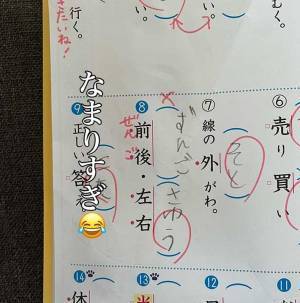 行く。
きたいね!
む。
⑥売り買い
⑦線の外がわ。
そと
⑧前後・左右
ぜんご
ずんごさゆう
⑨正しい答え
なまりすぎ😂
⑪
⑫
⑬当
⑭休